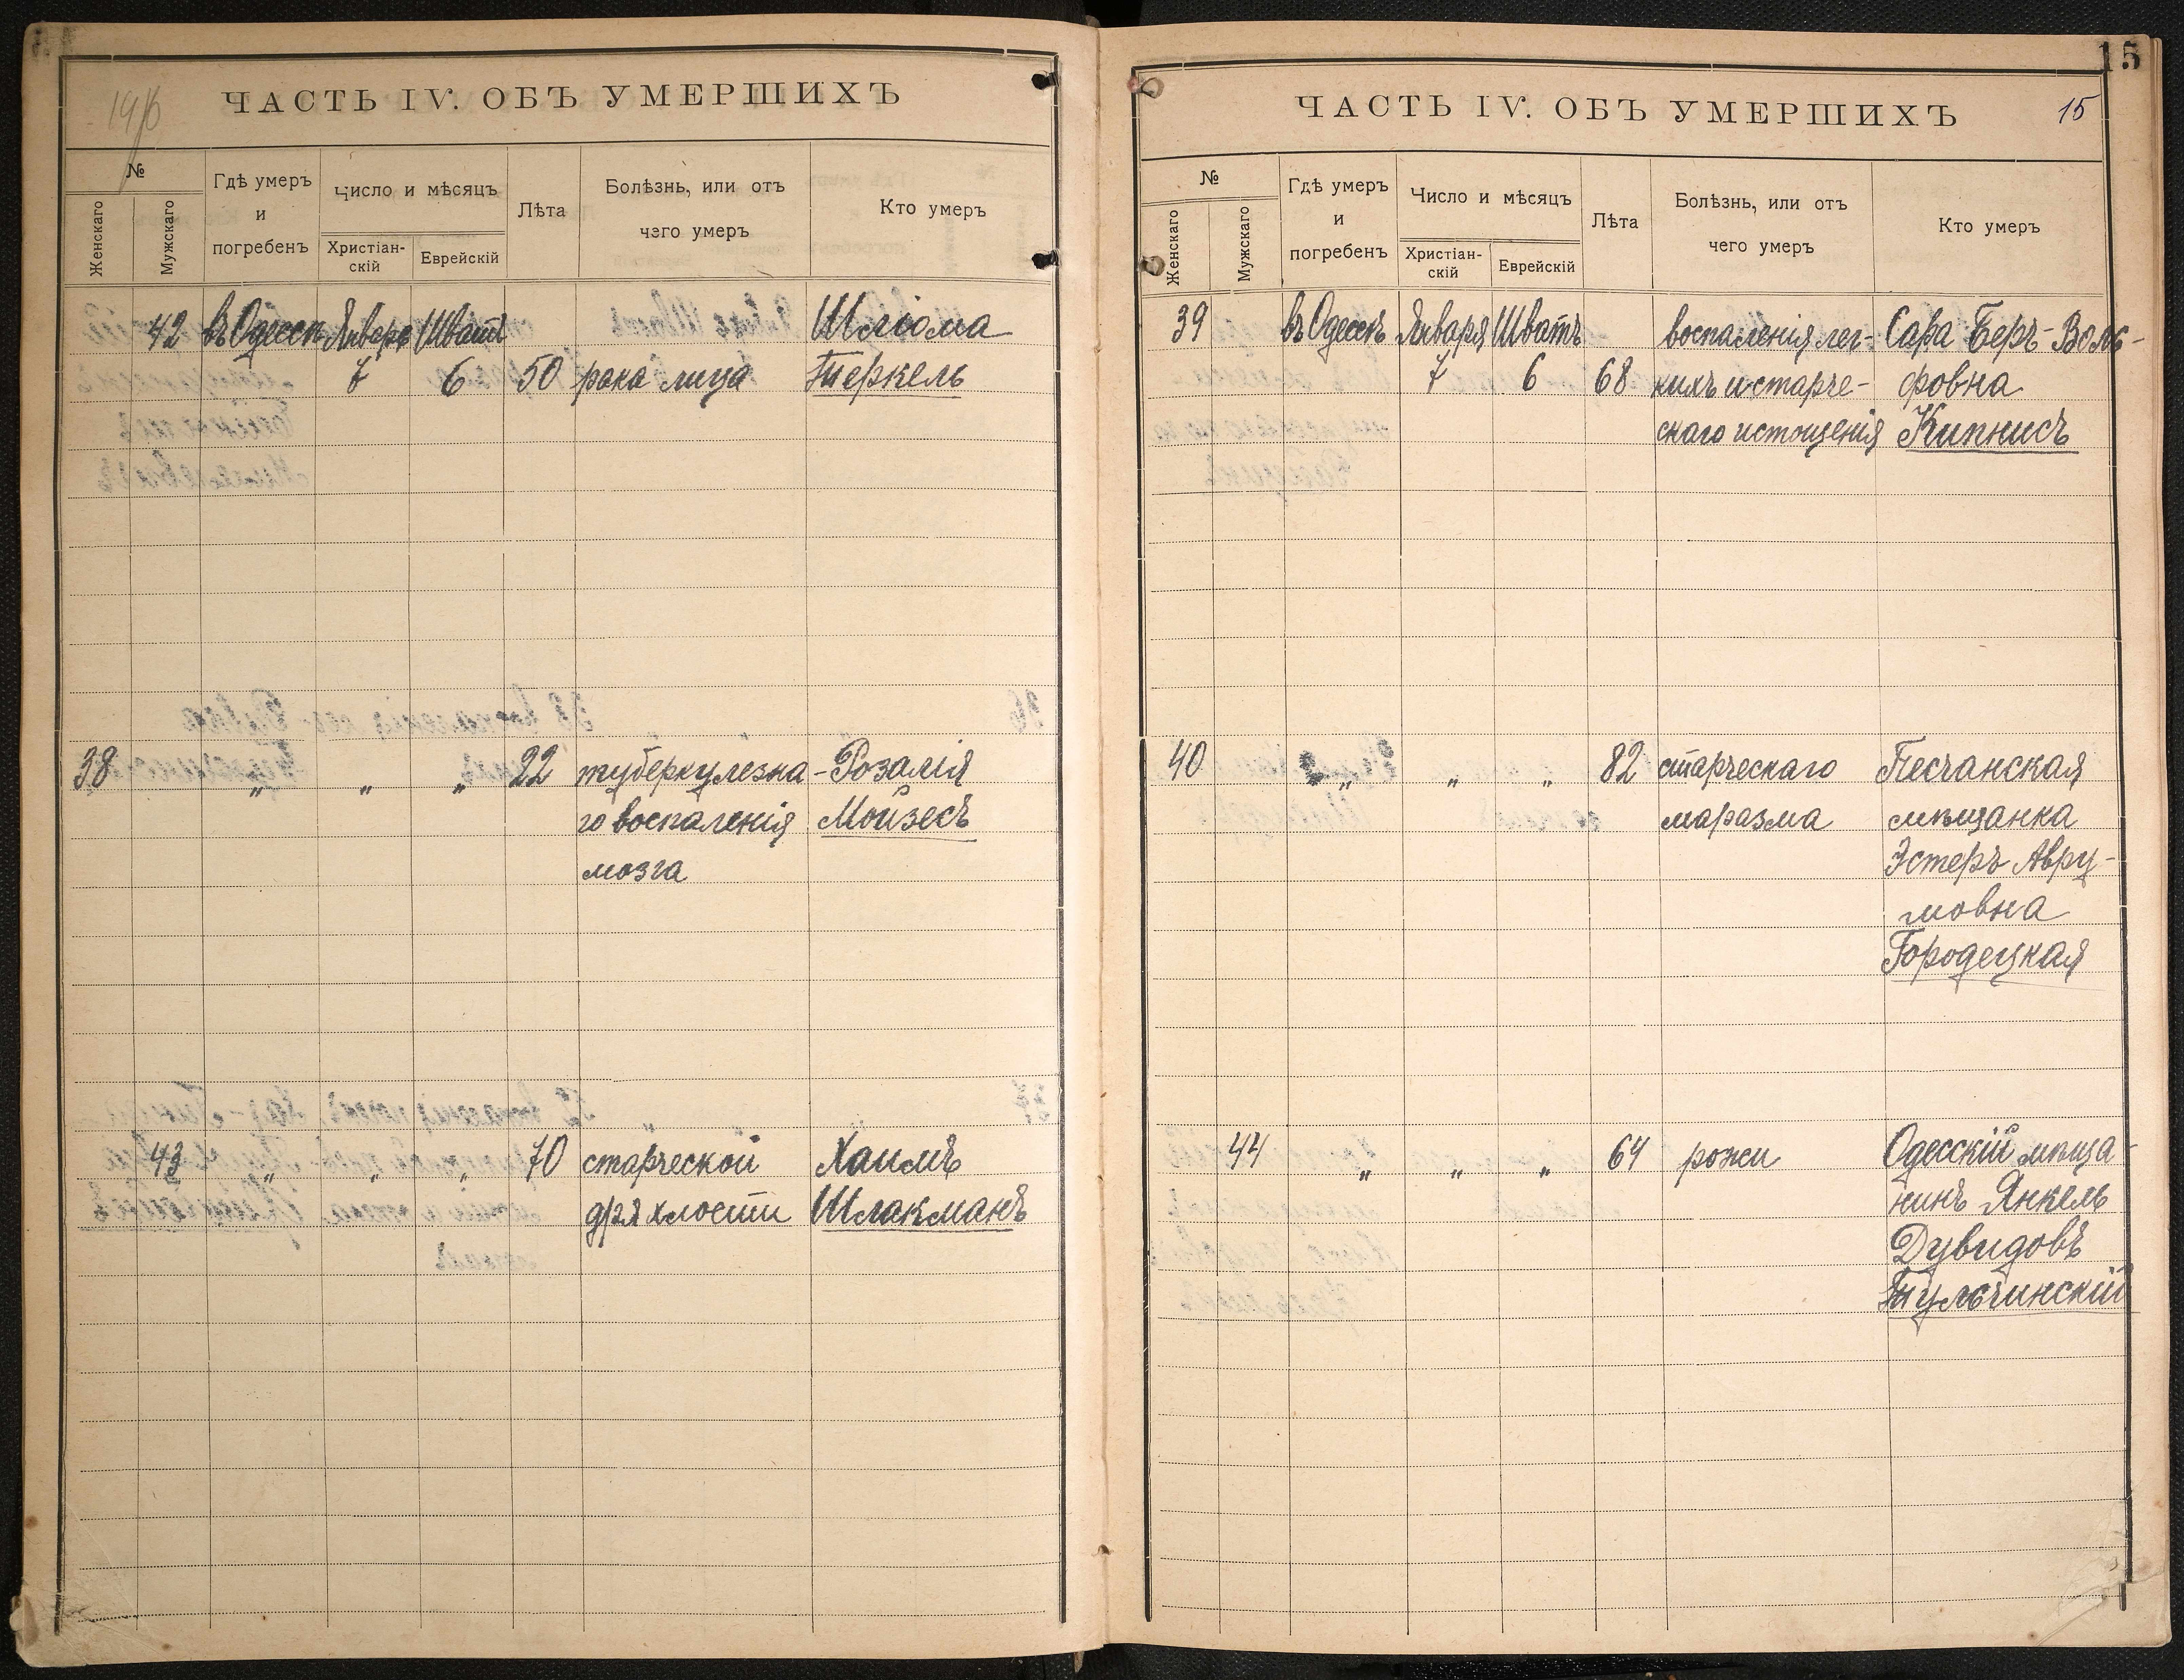 ЧАСТЬ IV. ОБЪ УМЕРШИХЪ
№
Женскаго
Мужскаго
Гдѣ умеръ
и
погребенъ
Число и мѣсяцъ
Христіан-
скій
Еврейскій
Лѣта
Болѣзнь, или отъ
чего умеръ
Кто умеръ
42 въ Одессѣ Января Шватъ Шліома
7 6 50 рака лица Теркель
38 „ „ „ 22 туберкулезна- Розалія
го воспаленія Мойзесъ
мозга
43 „ „ „ 70 старческой Хаимъ
дряхлости Шлакманъ
15
ЧАСТЬ IV. ОБЪ УМЕРШИХЪ 15
№
Женскаго
Мужскаго
Гдѣ умеръ
и
погребенъ
Число и мѣсяцъ
Христіан-
скій
Еврейскій
Лѣта
Болѣзнь, или отъ
чего умеръ
Кто умеръ
39 въ Одессѣ Января Шватъ воспаленія лег- Сара Беръ-Воль-
7 6 68 кихъ и старче- фовна
скаго истощенія Кипнисъ
40 „ „ „ 82 старческаго Песчанская
маразма мѣщанка
Эстеръ Авру-
мовна
Городецкая
44 „ „ „ 64 рожи Одесскій мѣща-
нинъ Янкель
Дувидовъ
Тульчинскій